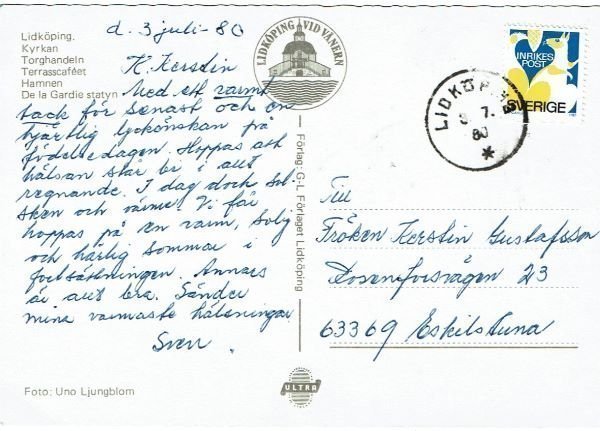 Lidköping.
Kyrkan
Torghandeln
Terrasscaféet
Hamnen
De la Gardie statyn
LIDKÖPING VID VÄNERN
d. 3 juli - 80
K. Kerstin
Med ett varmt
tack för senast och en
hjärtlig lyckönskan på
födelsedagen. Hoppas att
hälsan står bi i allt
regnande. I dag dock sol-
sken och värme. Vi får
hoppas på en varm, solig
och härlig sommar i
fortsättningen. Annars
är allt bra. Sänder
mina varmaste hälsningar
Sven
Foto: Uno Ljungblom
Förlag: G-L Förlaget Lidköping
ULTRA
INRIKES
POST
SVERIGE
LIDKÖPING
7.
80
Till
Fröken Kerstin Gustafsson
23
63369 Eskilstuna